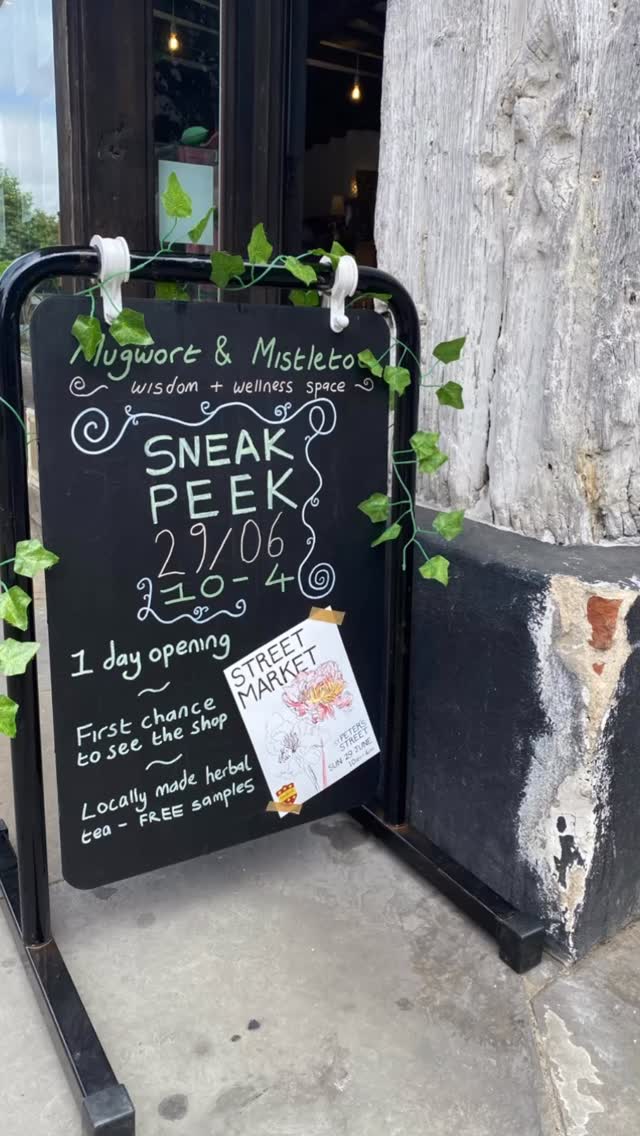 Mugwort & Mistleto
wisdom + wellness space
SNEAK
PEEK
29/06
10-4
1 day opening
First chance
to see the shop
Locally made herbal
tea - FREE samples
STREET
MARKET
ST PETERS
STREET
SUN 29 JUNE
10am-4pm